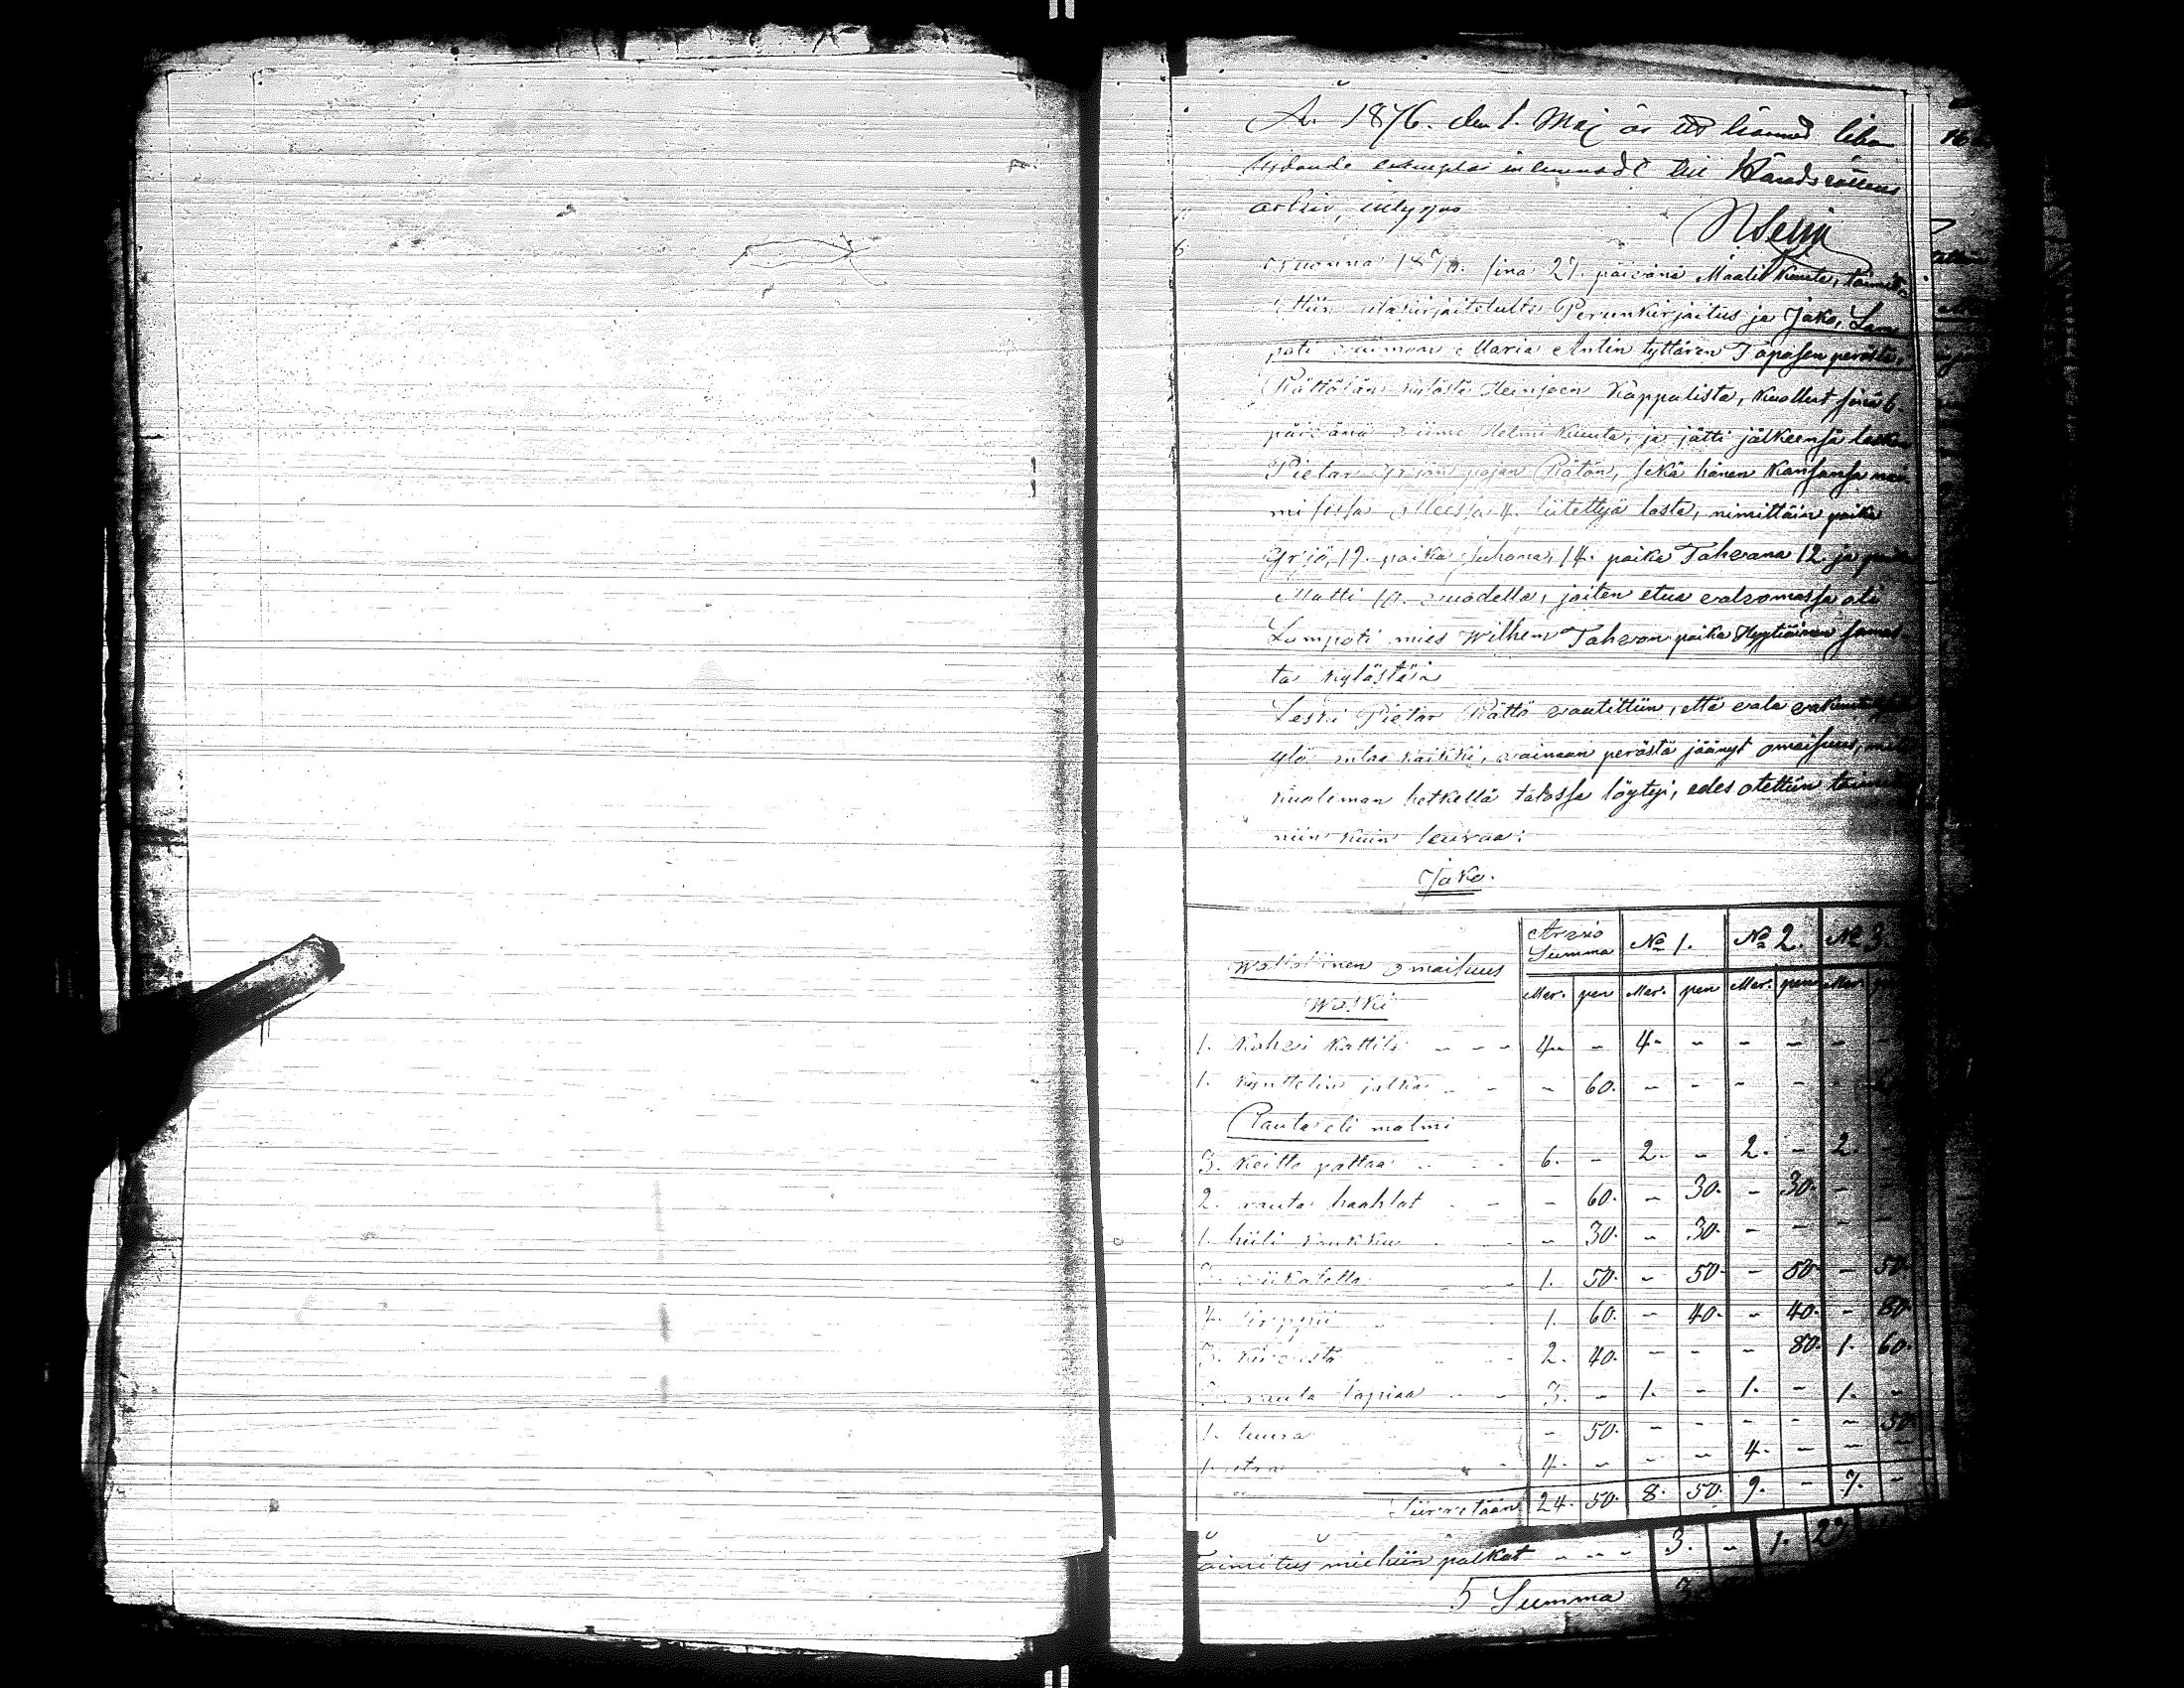 År 1876. den 1. Maj är ett härmed lika
lydande exemplar inlemnadt till Häradsrättens
arkiv, intygas
Wuonna 1876. sinä 27. päivänä Maalis kuuta, toimit-
ettiin allakirjoitetulta Perunkirjoitus ja Jako, Lam
poti vaimon Maria Antin tyttären Toposen perästä,
Rättölän kylästä Heinjoen Kappelista, kuollut sinä 6.
päivänä viime Helmi kuuta, ja jätti jälkeensä lesken
Pietar Yrjön pojan Rätön, sekä hänen kanssansa nai
misissa ollessa 4. siitettyä lasta, nimittäin poika
Yrjö, 19. poika Juhana, 14. poika Tahvana 12. ja poika
Matti 10. vuodella, joiten etua valvomassa oli
Lampoti mies Wilhem Tahvon poika Hyytiäinen samas
ta kylästä
Leski Pietar Rättö vaatittiin, että vala velvoituksella
ylös antaa kaikki, vainaan perästä jäänyt omaisuus, mitä
kuoleman hetkellä talossa löytyi, edes otettiin toimitus
niin kuin seuraa:
Jako.
Arvio Summa No 1. No 2. No 3.
Wallallinen omaisuus
Mar. pen Mar. pen Mar. pen Mar.
Waski
1. Kahvi kattila - - - 4 - 4 - - - -
1. Kynttelin jalka - - - 60. - - - -
Rauta eli malmi
3. Keitto pattaa - - 6. - 2. - 2. - 2.
2. rauta haahlat - - - 60. - 30. - 30. - -
1. hiili koukku - - 30. - 30. - - -
3. viikatetta - - 1. 50. - 50. - 50. - 50.
4. sirppii - 1. 60. - 40. - 40. - 80.
3. kirvestä - - 2. 40. - - - 80. 1. 60.
3. rauta lapiaa - - 3. - 1. - 1. - 1. -
1. tuura - 50. - - - - - 50.
1. atra - 4. - - - 4. - - -
Siirretään 24. 50. 8. 50. 9. - 7. -
Toimitus miehiin palkat - - - 3. - 1. 27
5 Summa 3